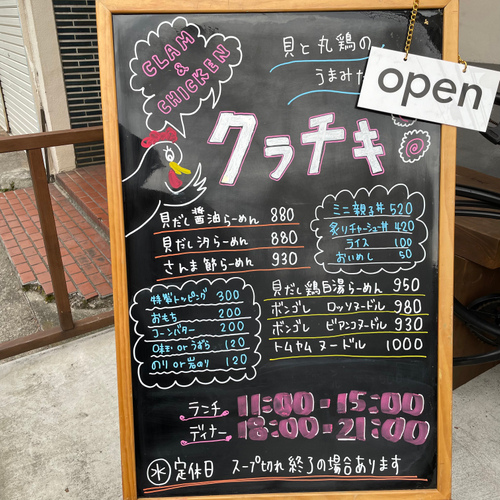 CLAM
&
CHICKEN
貝と丸鶏の
うまみ
open
クラチキ
貝だし醤油らーめん 880
貝だし汐らーめん 880
さんま節らーめん 930
ミニ親子丼 520
炙りチャーシュー丼 420
ライス 100
おいめし 50
貝だし鶏白湯らーめん 950
ボンゴレ ロッソヌードル 980
ボンゴレ ビアンコヌードル 930
トムヤムヌードル 1000
特製トッピング 300
おもち 200
コーンバター 200
味玉 or うずら 120
のり or 岩のり 120
ランチ 11:00-15:00
ディナー 18:00-21:00
㊌定休日 スープ切れ終了の場合あります